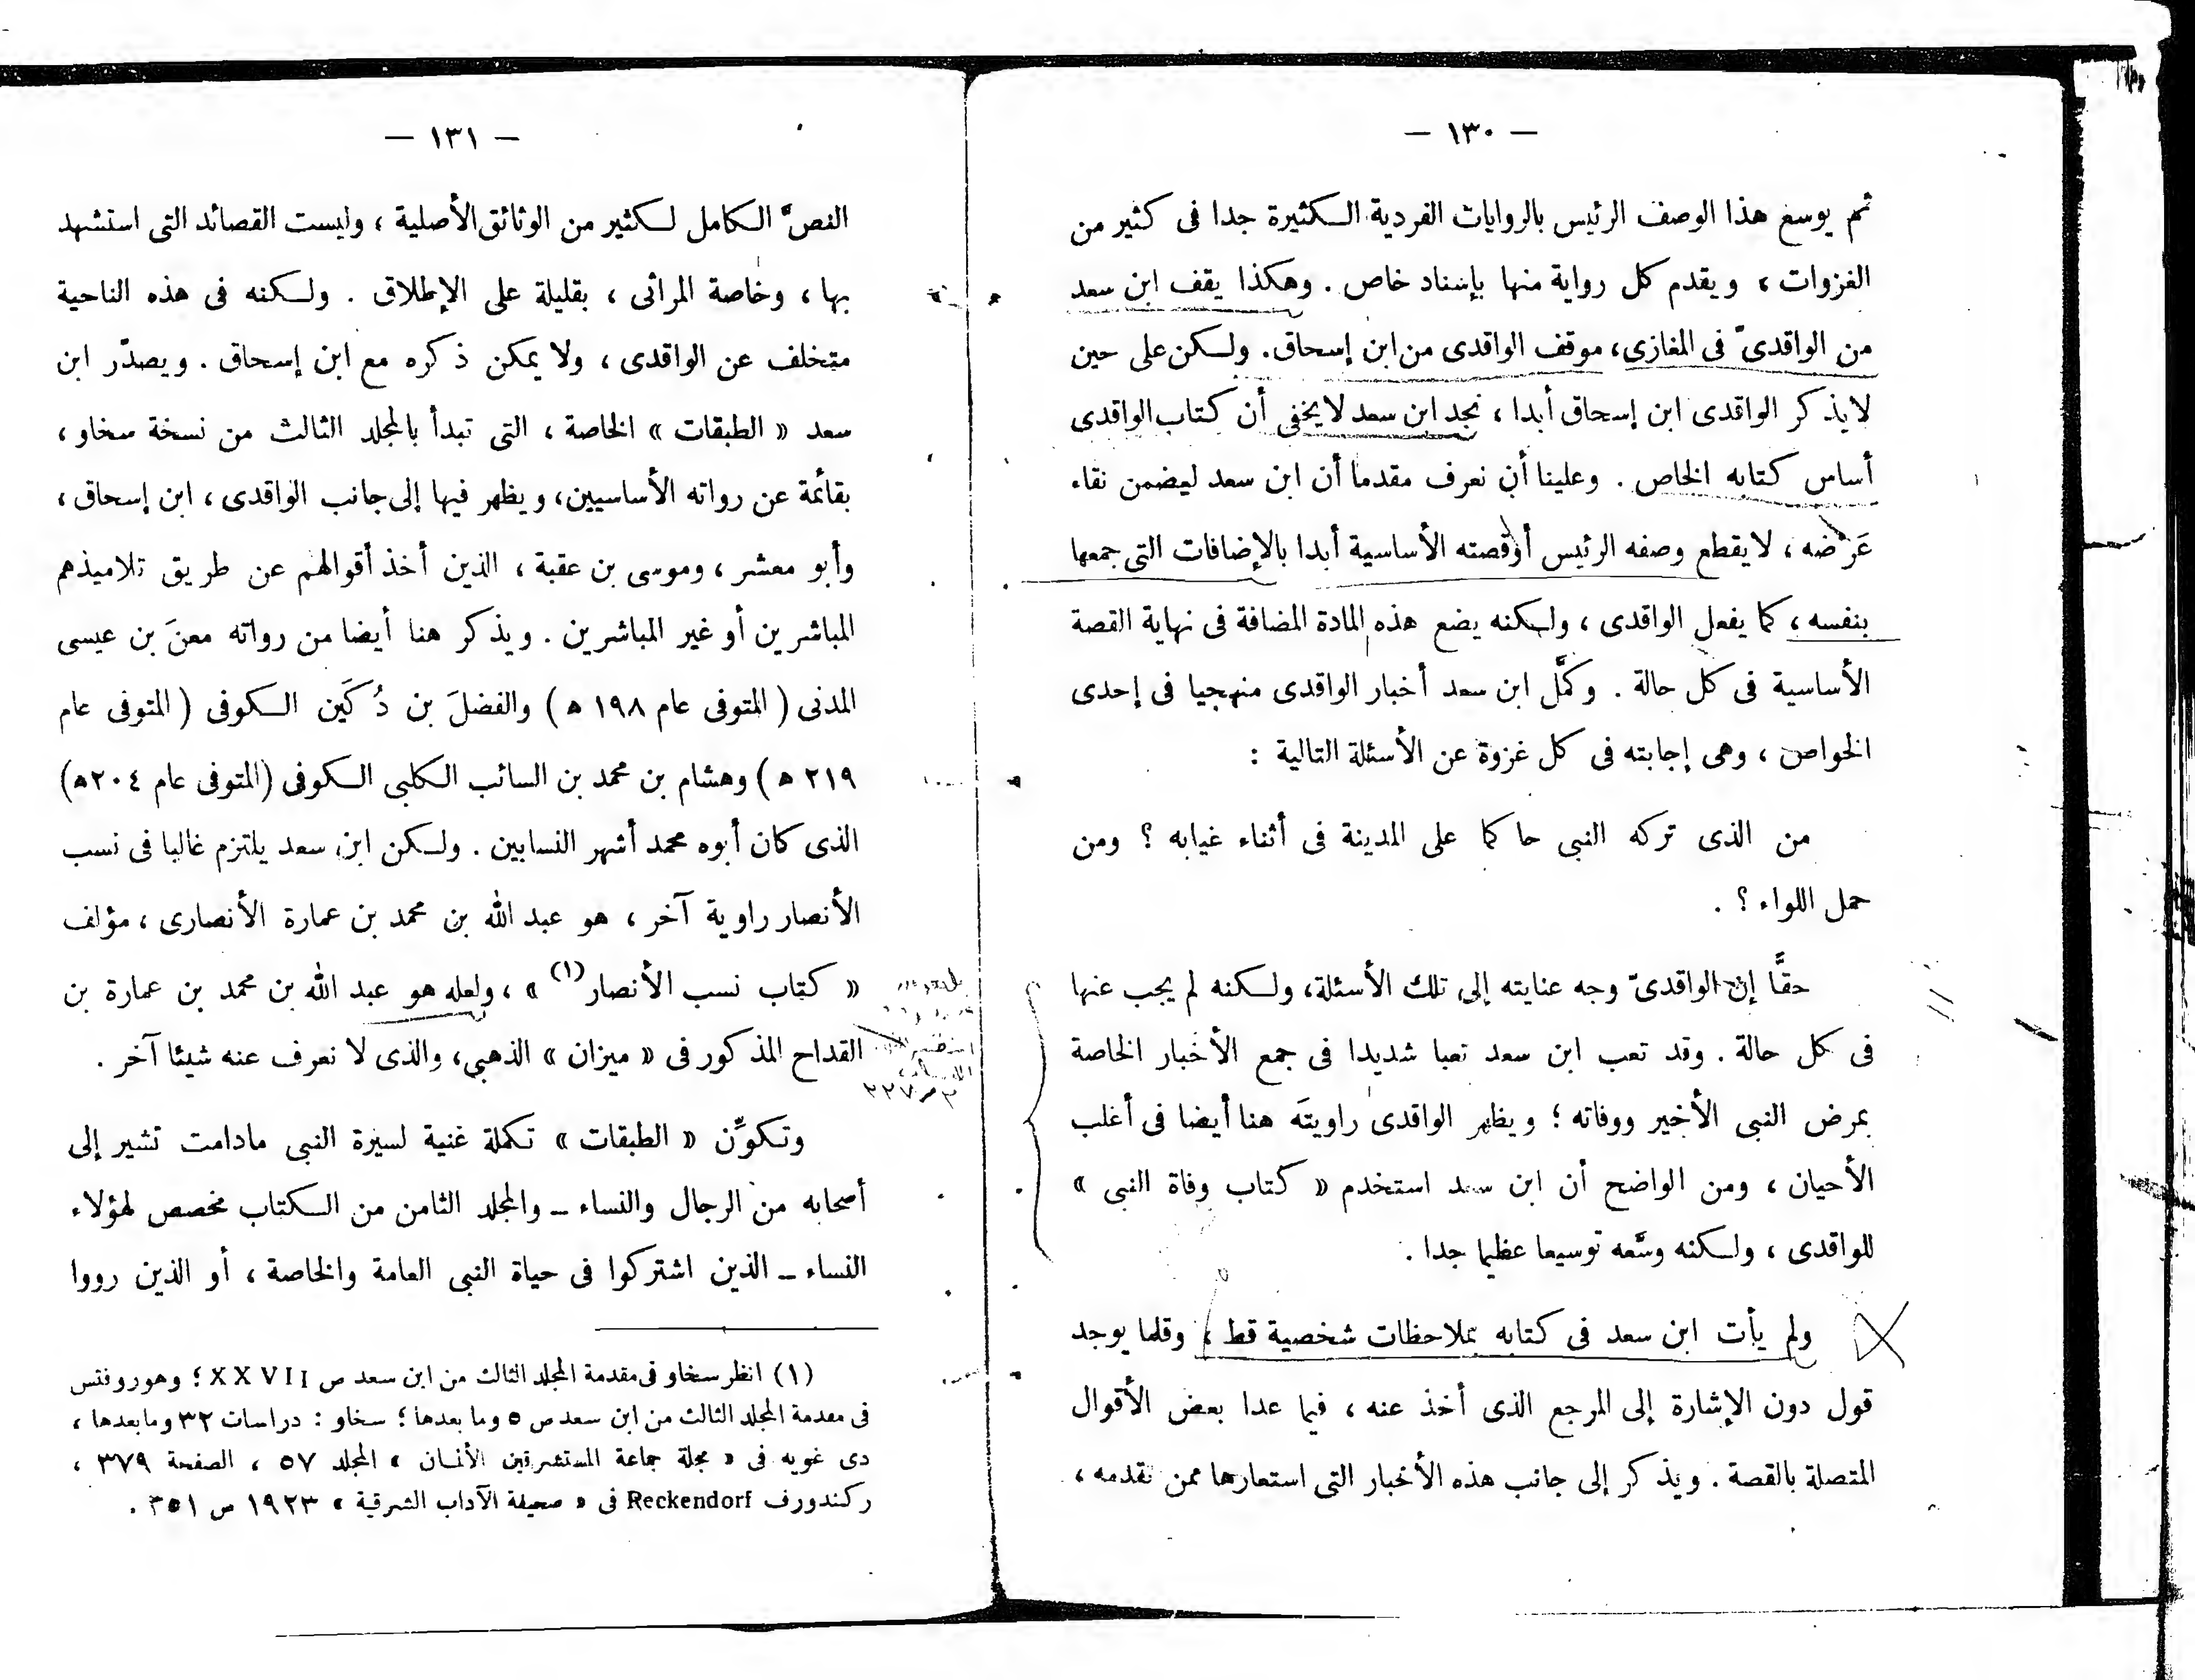 — ١٣٠ —
ثم يوسع هذا الوصف الرئيس بالروايات الفردية الكثيرة جدا فى كثير من
الغزوات ، ويقدم كل رواية منها بإسناد خاص . وهكذا يقف ابن سعد
من الواقدىّ فى المغازى، موقف الواقدى من ابن إسحاق . ولكن على حين
لا يذكر الواقدى ابن إسحاق أبدا ، نجد ابن سعد لا يخفى أن كتاب الواقدى
أساس كتابه الخاص . وعلينا أن نعرف مقدما أن ابن سعد ليضمن نقاء
عَرْضه ، لا يقطع وصفه الرئيس أو قصته الأساسية أبدا بالإضافات التى جمعها
بنفسه ، كما يفعل الواقدى ، ولكنه يضع هذه المادة المضافة فى نهاية القصة
الأساسية فى كل حالة . وكمَّل ابن سعد أخبار الواقدى منهجيا فى إحدى
الخواص ، وهى إجابته فى كل غزوة عن الأسئلة التالية :
من الذى تركه النبى حاكما على المدينة فى أثناء غيابه ؟ ومن
حمل اللواء ؟ .
حقًّا إن الواقدىّ وجه عنايته إلى تلك الأسئلة، ولكنه لم يجب عنها
فى كل حالة . وقد تعب ابن سعد تعبا شديدا فى جمع الأخبار الخاصة
بمرض النبى الأخير ووفاته ؛ ويظهر الواقدى راويتَه هنا أيضا فى أغلب
الأحيان ، ومن الواضح أن ابن سعد استخدم « كتاب وفاة النبى »
للواقدى ، ولكنه وسَّعه توسيعا عظيما جدا .
ولم يأت ابن سعد فى كتابه بملاحظات شخصية قط ، وقلما يوجد
قول دون الإشارة إلى المرجع الذى أخذ عنه ، فيما عدا بعض الأقوال
المتصلة بالقصة . ويذكر إلى جانب هذه الأخبار التى استعارها ممن تقدمه ،
— ١٣١ —
النصَّ الكامل لكثير من الوثائق الأصلية ، وليست القصائد التى استشهد
بها ، وخاصة المراثى ، بقليلة على الإطلاق . ولكنه فى هذه الناحية
متخلف عن الواقدى ، ولا يمكن ذكره مع ابن إسحاق . ويصدّر ابن
سعد « الطبقات » الخاصة ، التى تبدأ بالمجلد الثالث من نسخة سخاو ،
بقائمة عن رواته الأساسيين، ويظهر فيها إلى جانب الواقدى ، ابن إسحاق ،
وأبو معشر ، وموسى بن عقبة ، الذين أخذ أقوالهم عن طريق تلاميذهم
المباشرين أو غير المباشرين . ويذكر هنا أيضا من رواته معنَ بن عيسى
المدنى ( المتوفى عام ١٩٨ ﻫ ) والفضلَ بن دُكَين الكوفى ( المتوفى عام
٢١٩ ﻫ ) وهشام بن محمد بن السائب الكلبى الكوفى (المتوفى عام ٢٠٤ﻫ)
الذى كان أبوه محمد أشهر النسابين . ولكن ابن سعد يلتزم غالبا فى نسب
الأنصار راوية آخر ، هو عبد الله بن محمد بن عمارة الأنصارى ، مؤلف
« كتاب نسب الأنصار(١) » ، ولعله هو عبد الله بن محمد بن عمارة بن
القداح المذكور فى « ميزان » الذهبى، والذى لا نعرف عنه شيئا آخر .
وتكوِّن « الطبقات » تكملة غنية لسيرة النبى مادامت تشير إلى
أصحابه من الرجال والنساء ــ والمجلد الثامن من الكتاب مخصص لهؤلاء
النساء ــ الذين اشتركوا فى حياة النبى العامة والخاصة ، أو الذين رووا
(١) انظر سخاو فى مقدمة المجلد الثالث من ابن سعد ص XXVII ؛ وهوروفتس
فى مقدمة المجلد الثالث من ابن سعد ص ٥ وما بعدها ؛ سخاو : دراسات ٣٢ وما بعدها ،
دى غويه فى « مجلة جماعة المستشرقين الألمان » المجلد ٥٧ ، الصفحة ٣٧٩ ،
ركندورف Reckendorf فى « صحيفة الآداب الشرقية » ١٩٢٣ ص ٣٥١ .